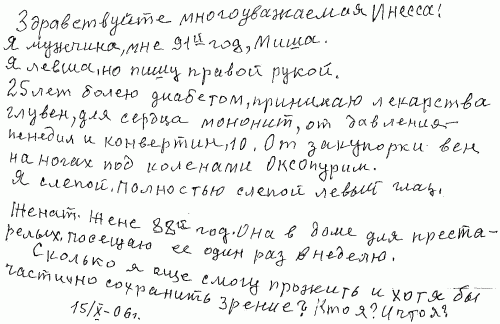 Здравствуйте многоуважаемая Инесса!
Я мужчина, мне 91й год, Миша.
Я левша, но пишу правой рукой.
25 лет болею диабетом, принимаю лекарства
глувен, для сердца мононит, от давления-
пенедил и конвертин. 10. От закупорки вен
на ногах под коленами Оксопурим.
Я слепой. Полностью слепой левый глаз.
Женат. Жене 88й год. Она в доме для преста-
релых, посещаю ее один раз в неделю.
Сколько я еще смогу прожить и хотя бы
частично сохранить зрение? Кто я? И что я?
15/X-06г.